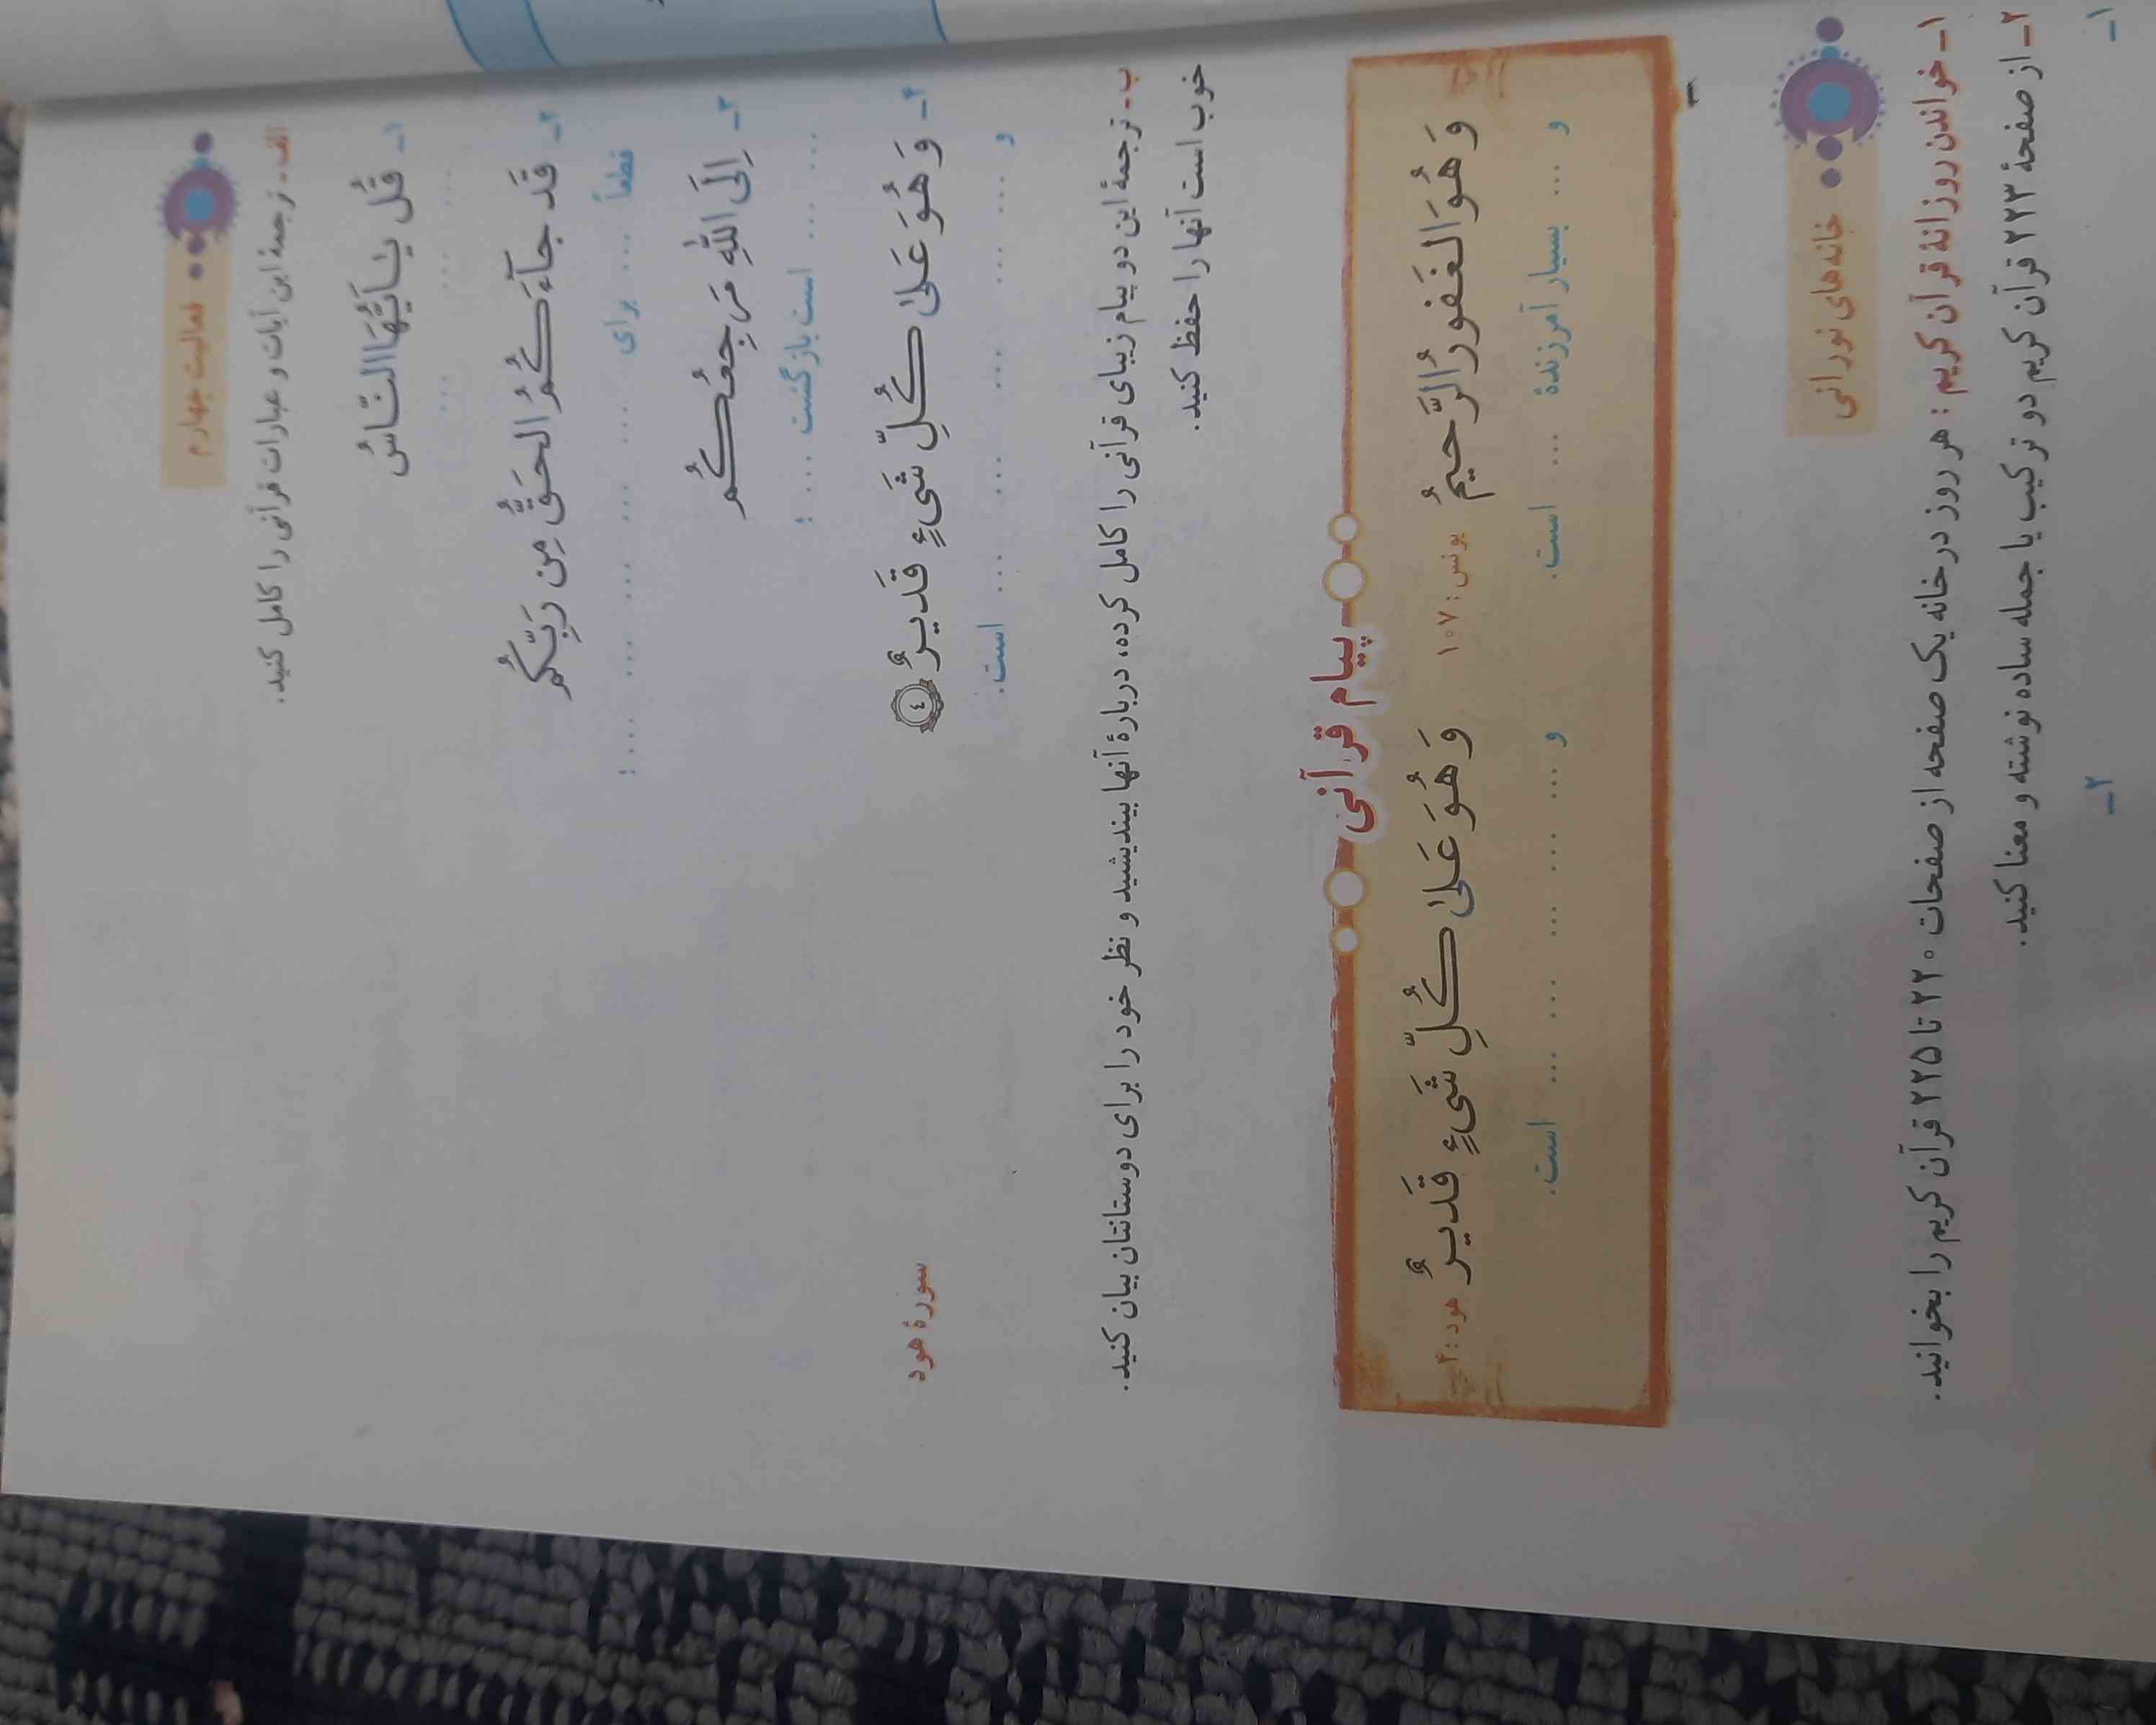 فعالیت چهارم
الف ـ ترجمهٔ این آیات و عبارات قرآنی را کامل کنید.
۱ـ قُل یٰـاَیُّهَا النّـاسُ
... ... ...
۲ـ قَد جآءَکُمُ الحَقُّ مِن رَبِّکُم
قطعاً ... برای ... ... ... ... ...؛
۳ـ اِلَی اللّٰهِ مَرجِعُکُم
... ... است بازگشت ... ...؛
۴ـ وَ هُوَ عَلیٰ کُلِّ شَیءٍ قَدیرٌ ٤ سورهٔ هود
و ... ... ... ... ... است.
ب ـ ترجمهٔ این دو پیام زیبای قرآنی را کامل کرده، دربارهٔ آنها بیندیشید و نظر خود را برای دوستانتان بیان کنید.
خوب است آنها را حفظ کنید.
پیام قرآنی
وَ هُوَ الغَفورُ الرَّحیمُ یونس: ۱۰۷ وَ هُوَ عَلیٰ کُلِّ شَیءٍ قَدیرٌ هود: ۴
و ... بسیار آمرزندهٔ ... است. و ... ... ... ... ... است.
خانه‌های نورانی
۱ـ خواندن روزانهٔ قرآن کریم: هر روز در خانه یک صفحه از صفحات ۲۲۰ تا ۲۲۵ قرآن کریم را بخوانید.
۲ـ از صفحهٔ ۲۲۳ قرآن کریم دو ترکیب یا جمله ساده نوشته و معنا کنید.
۱ـ ۲ـ